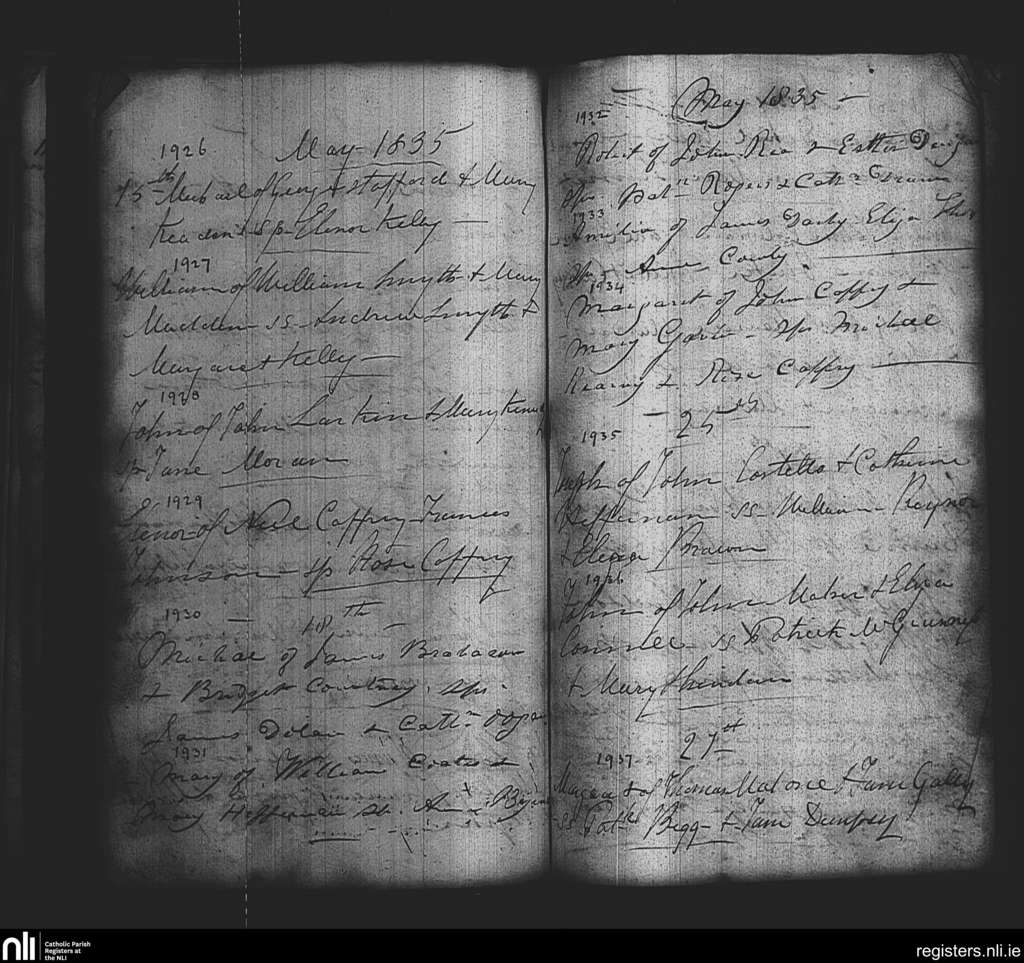 1926
May 1835
15th Michael of George Stafford & Mary
Sp. Elenor Kelly
1927
William of William Smyth & Mary
Madden ss Andrew Smyth &
Margaret Kelly
1928
John of John Larkin & Mary
sp Jane Moran
1929
Elenor of Neil Caffrey Frances
Johnson sp Rose Caffry
1930
18th
Michael of James Brabacon
& Bridget Courtney. Sps.
James Dolan & Cathn
1931
Mary of William Coates &
Mary Heffernan Ss. Ann
May 1835
1932
Robert of John Rea & Esther
Sps Patn Rogers & Cathn
1933
of James Darby Eliza
Sps Anne
1934
Margaret of John Caffry &
Mary Sps Michael
& Rose Caffry
25th
1935
Joseph of John Costello & Catherine
Heffernan ss William Raynor
& Eleza Brown
1936
John of John Maher & Eliza
Connell ss Patrick
& Mary
27th
1937
Margaret of Thomas Malone & Jane
ss Patk Begg & Jane Dempsey
nli
Catholic Parish
Registers at
the NLI
registers.nli.ie